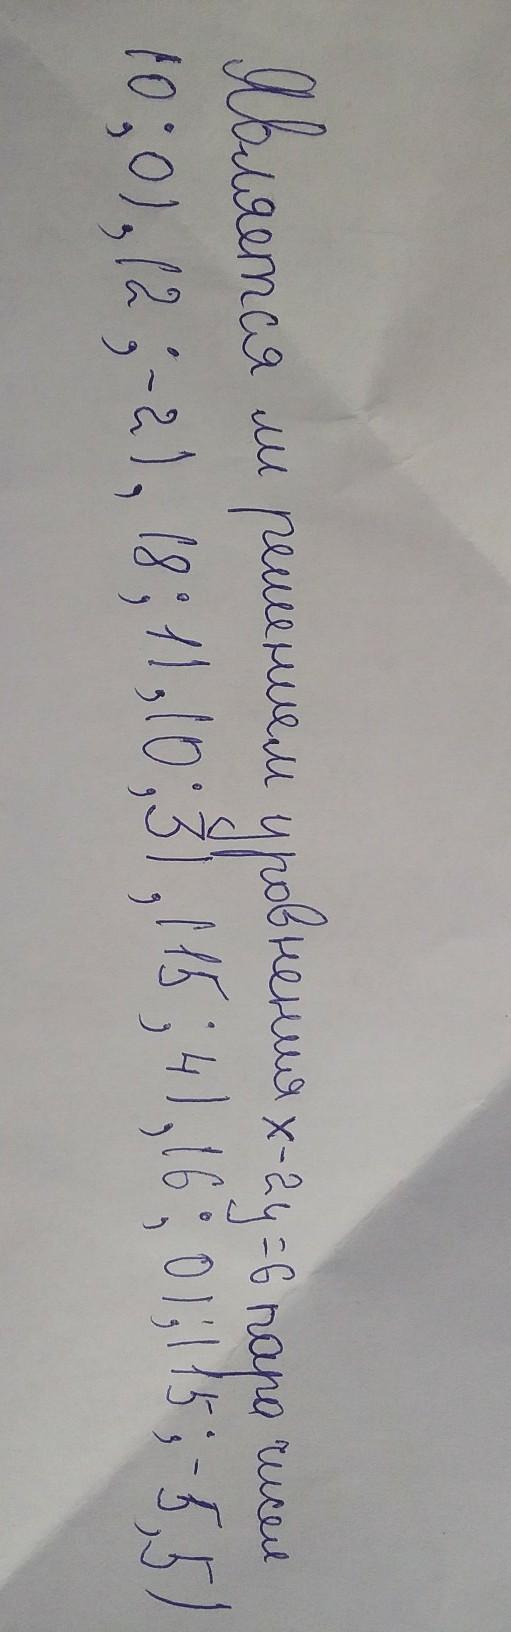 Является ли решением уровнения x-2y=6 пара чисел
(0;0),(2;-2),(8;1),(0;3),(15;4),(6;0);(15;-5,5)